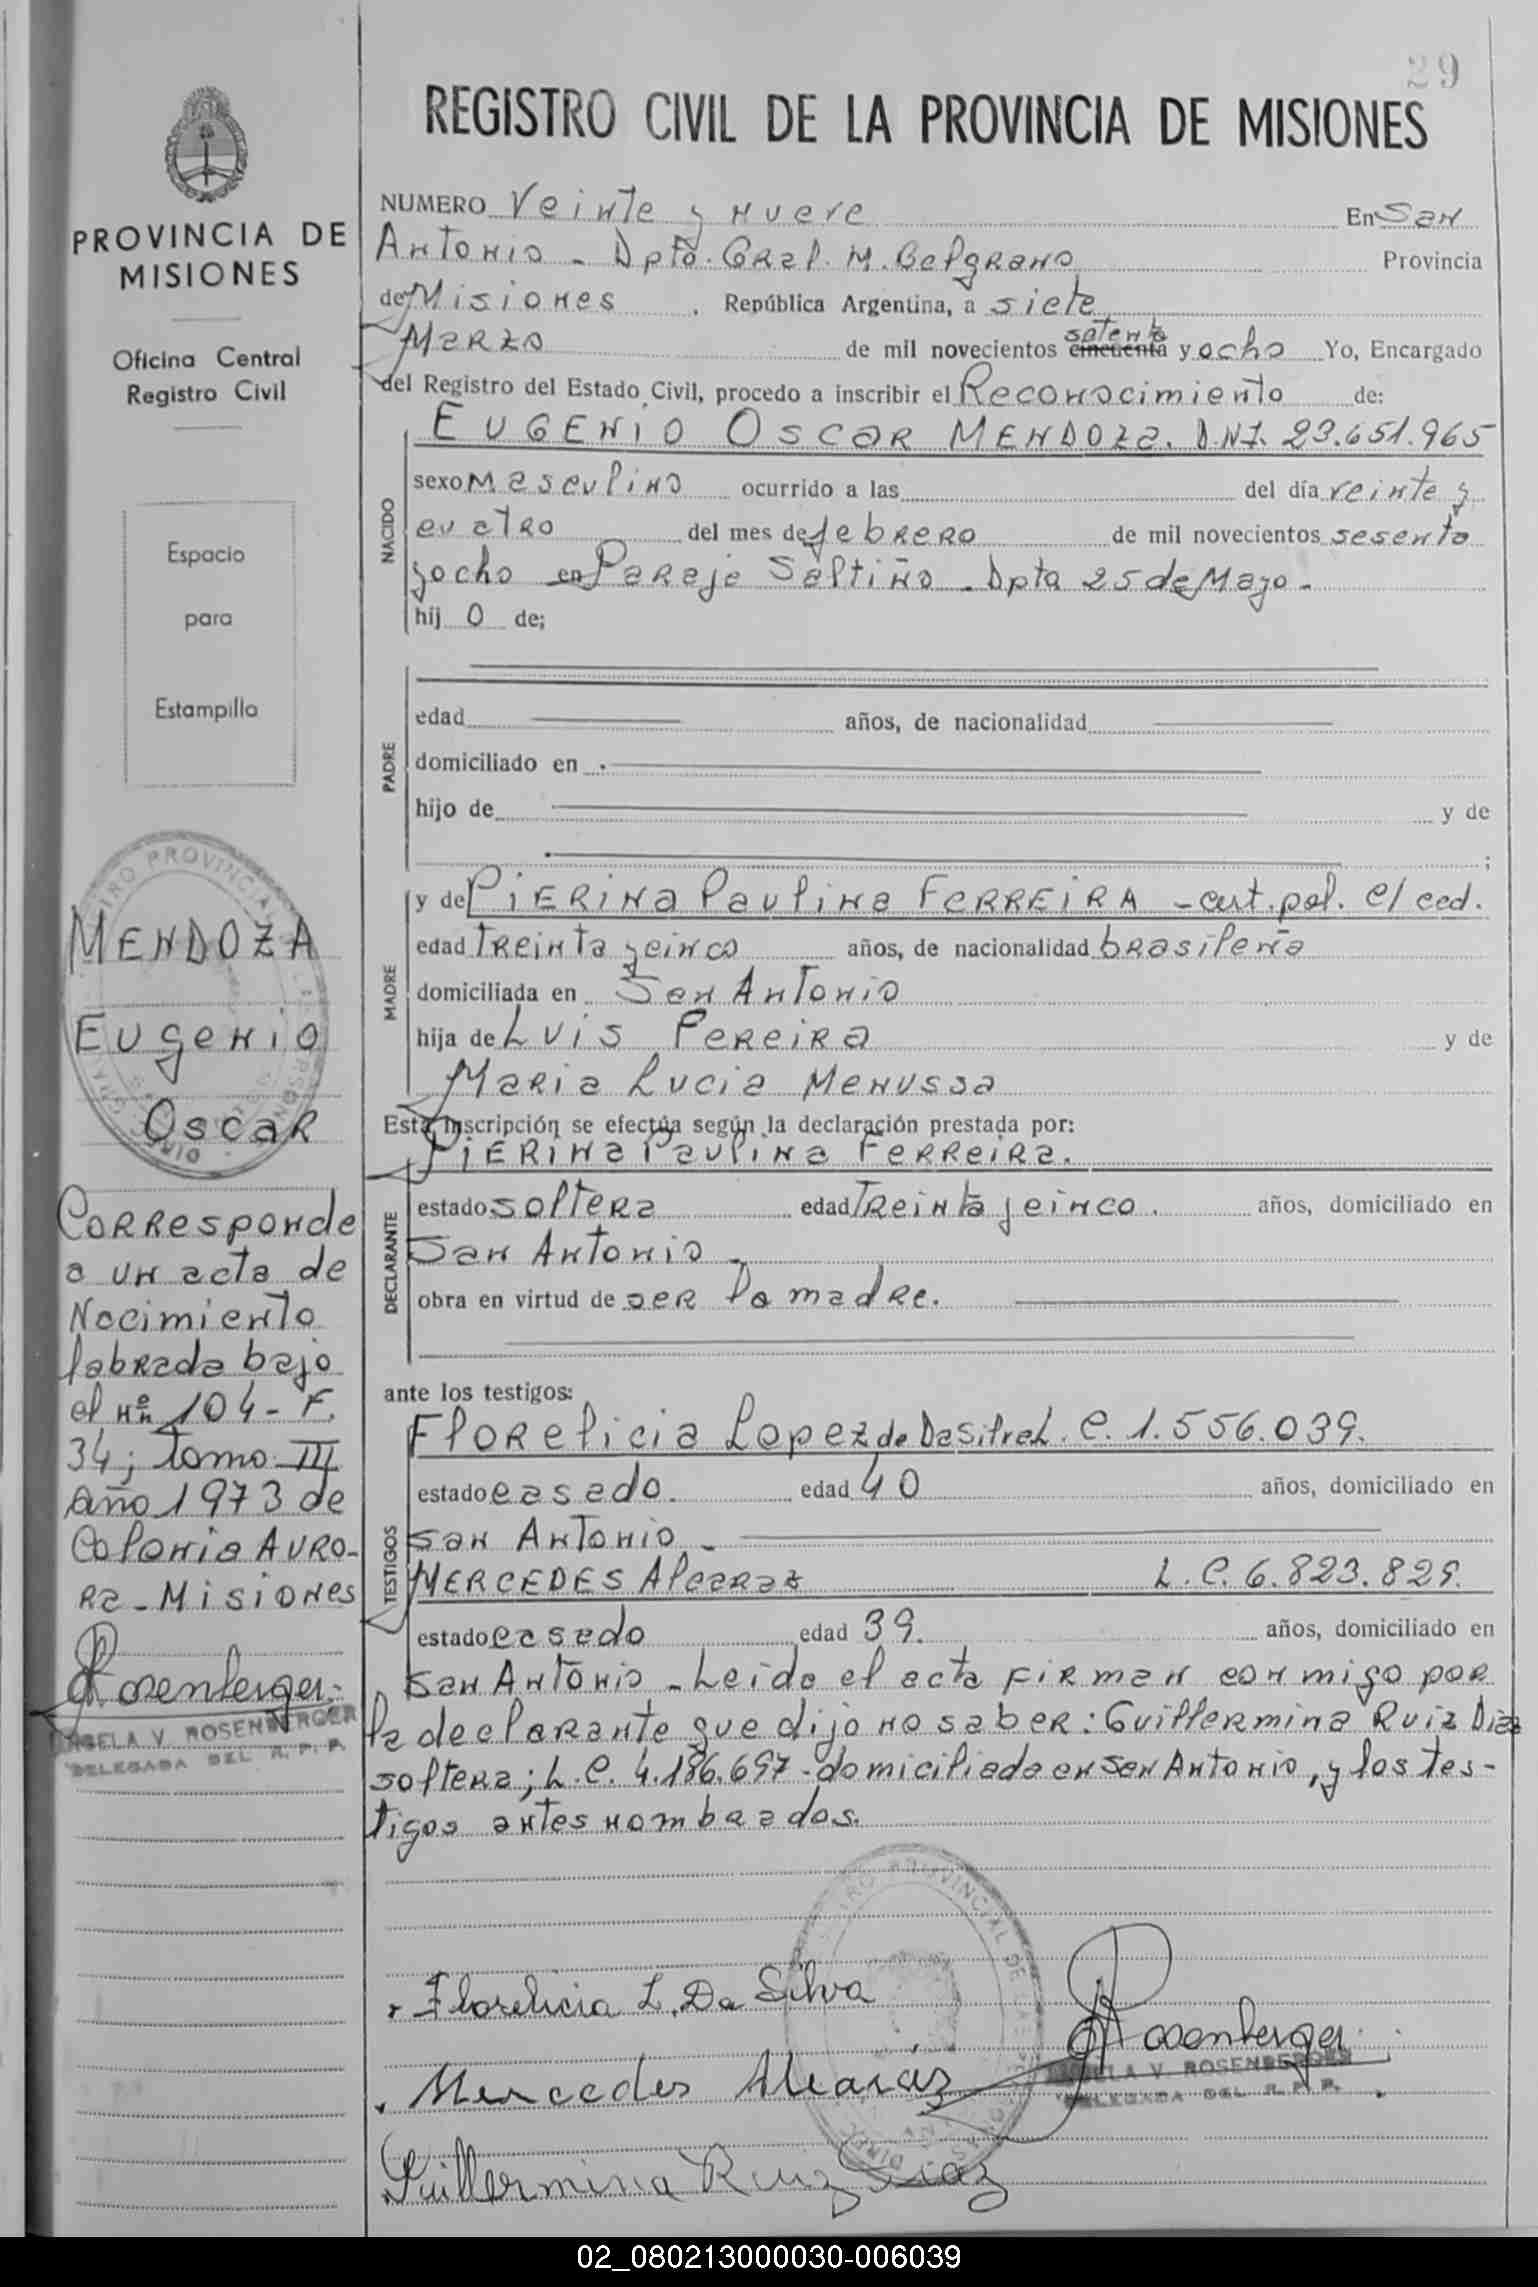 29
REGISTRO CIVIL DE LA PROVINCIA DE MISIONES
PROVINCIA DE
MISIONES
Oficina Central
Registro Civil
Espacio
para
Estampilla
MENDOZA
Eugenio
Oscar
Corresponde
a un acta de
Nacimiento
labrada bajo
el nº 104 - F.
34; tomo III
año 1973 de
Colonia Auro-
ra - Misiones
Rosenberger
ANGELA V. ROSENBERGER
DELEGADA DEL R. P. P.
NUMERO Veinte y nueve En San
Antonio - Dpto. Gral. M. Belgrano Provincia
de Misiones, República Argentina, a siete
Marzo de mil novecientos cincuenta setenta y ocho Yo, Encargado
del Registro del Estado Civil, procedo a inscribir el Reconocimiento de:
EUGENIO OSCAR MENDOZA. D.N.I. 23.651.965
NACIDO
sexo Masculino ocurrido a las del día veinte y
cuatro del mes de febrero de mil novecientos sesenta
y ocho en Paraje Saltiño - Dpta 25 de Mayo -
hij o de;
PADRE
edad años, de nacionalidad
domiciliado en
hijo de y de
;
MADRE
y de PIERINA Paulina FERREIRA - cert. pol. c/ ced.
edad treinta y cinco años, de nacionalidad brasileña
domiciliada en San Antonio
hija de Luis Pereira y de
Maria Lucia Menussa
Esta inscripción se efectúa según la declaración prestada por:
PIERINA Paulina Ferreira.
DECLARANTE
estado soltera edad treinta y cinco. años, domiciliado en
San Antonio -
obra en virtud de ser la madre.
ante los testigos:
TESTIGOS
Florelicia Lopez de Da Silva L. C. 1.556.039.
estado casado. edad 40 años, domiciliado en
San Antonio -
MERCEDES Alcaraz L. C. 6.823.829.
estado casado edad 39. años, domiciliado en
San Antonio - Leida el acta firman conmigo por
la declarante que dijo no saber: Guillermina Ruiz Diaz
soltera; L. C. 4.186.697 - domiciliada en San Antonio, y los tes-
tigos antes nombrados.
Florelicia L. Da Silva
Rosenberger
ANGELA V. ROSENBERGER
DELEGADA DEL R. P. P.
Mercedes Alcaráz
Guillermina Ruiz Diaz
02_080213000030-006039